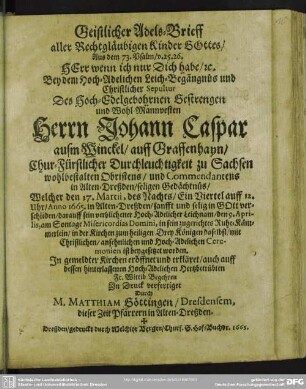 Geistlicher Adels-Brieff
aller Rechtgläubigen Kinder GOttes/
Aus dem 73. Psalm/v. 25. 26.
HErr wenn ich nur Dich habe/ ꝛc.
Bey dem Hoch-Adelichen Leich-Begängnüs und
Christlicher Sepultur
Des Hoch-Edelgebohrnen Gestrengen
und Wohl-Mannvesten
Herrn Johann Caspar
ausm Winckel/ auff Graffenhayn/
Chur-Fürstlicher Durchleuchtigkeit zu Sachsen
wohlbestalten Obristens/ und Commendantens
in Alten-Dreßden/ seligen Gedächtnüs/
Welcher den 17. Martii, des Nachts/ Ein Viertel auff 12.
Uhr/ Anno 1665. in Alten-Dresden/ sanfft und selig in GOtt ver-
schieden/ darauff sein verblichener Hoch-Adelicher Leichnam/ den 9. Apri-
lis, am Sontage Misericordias Domini, in sein zugerichtes Ruhe-Käm-
merlein/ in der Kirchen zum heiligen Drey Königen daselbst/ mit
Christlichen/ ansehnlichen und Hoch-Adelichen Cere-
monien ist beygesetzet worden.
In gemeldter Kirchen eröffnet und erkläret/ auch auff
dessen hinterlassenen Hoch-Adelichen Hertzbetrübten
Fr. Wittib Begehren
In Druck verfertiget
Durch
M. MATTHIAM Göttingen/ Dresdensem,
dieser Zeit Pfarrern in Alten-Dresden.
Dreßden/ gedruckt durch Melchior Bergen/ Churf. S. Hof-Buchdr. 1665.